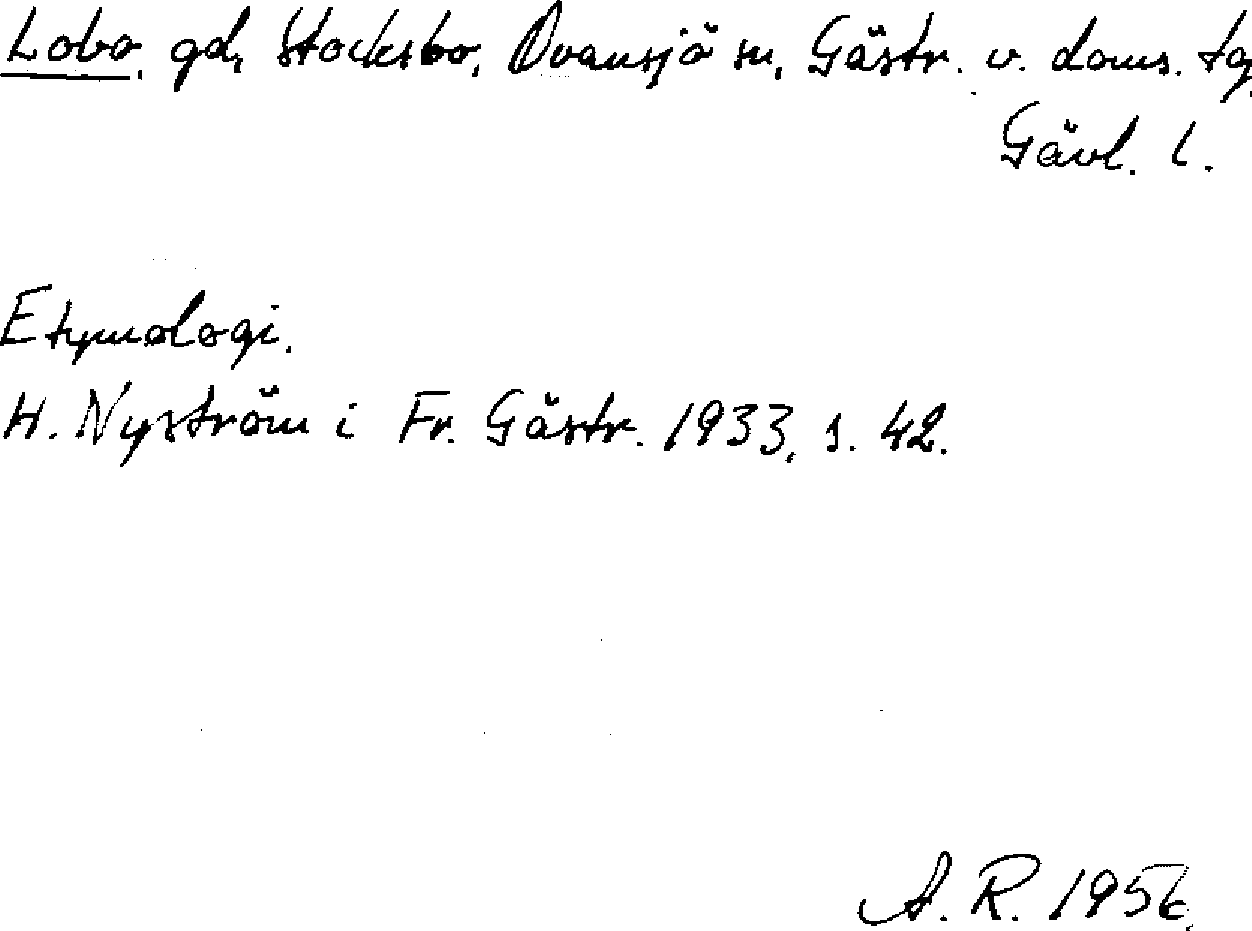 Lobo, gd, Stocksbo, Ovansjö sn, Gästr. v. doms. tg
Gävl. l.
Etymologi.
H. Nyström i Fr. Gästr. 1933, s. 42.
A. R. 1956.